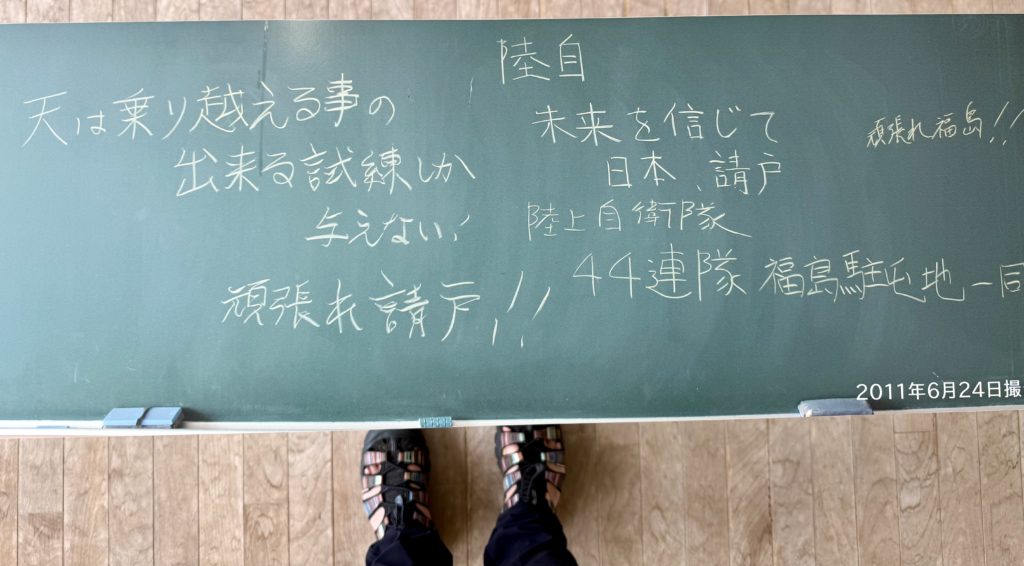 陸自
天は乗り越える事の
出来る試練しか
与えない!
頑張れ請戸!!
未来を信じて
日本、請戸
陸上自衛隊
44連隊 福島駐屯地一同
頑張れ福島!!
2011年6月24日撮